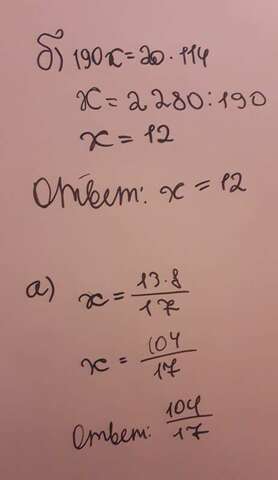 б) 190x = 20 · 114
x = 2280 : 190
x = 12
Ответ: x = 12
а) x = 13·8/17
x = 104/17
Ответ: 104/17